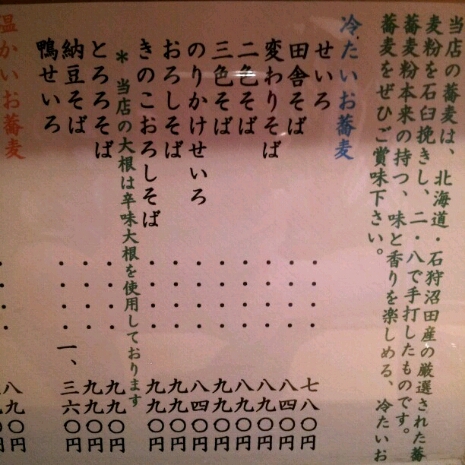 当店のお蕎麦は、北海道・石狩沼田産の厳選された蕎
麦粉を石臼挽きし、二・八で手打したものです。
蕎麦粉本来の持つ、味と香りを楽しめる、冷たいお
蕎麦をぜひご賞味下さい。
冷たいお蕎麦
せいろ・・・七八〇円
田舎そば・・・八四〇円
変わりそば・・・八九〇円
二色そば・・・八九〇円
三色そば・・・
のりかけせいろ・・・八四〇円
おろしそば・・・九九〇円
きのこおろしそば・・・九九〇円
*当店の大根は辛味大根を使用しております
とろろそば・・・九九〇円
納豆そば・・・九九〇円
鴨せいろ・・・一、三六〇円
温かいお蕎麦
八九〇円